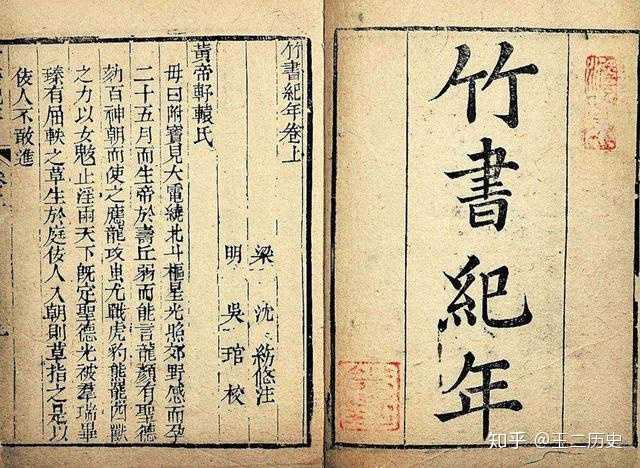 竹書紀年
竹書紀年卷上
梁 沈 約 注
明 吳 琯 校
黃帝軒轅氏
母曰附寶見大電繞北斗樞星光照郊野感而孕
二十五月而生帝於壽丘弱而能言龍顏有聖德
劾百神朝而使之應龍攻蚩尤戰虎豹熊羆四獸
之力以女魃止淫雨天下既定聖德光被羣瑞畢
臻有屈軼之草生於庭佞人入朝則草指之是以
佞人不敢進
知乎 @王二历史